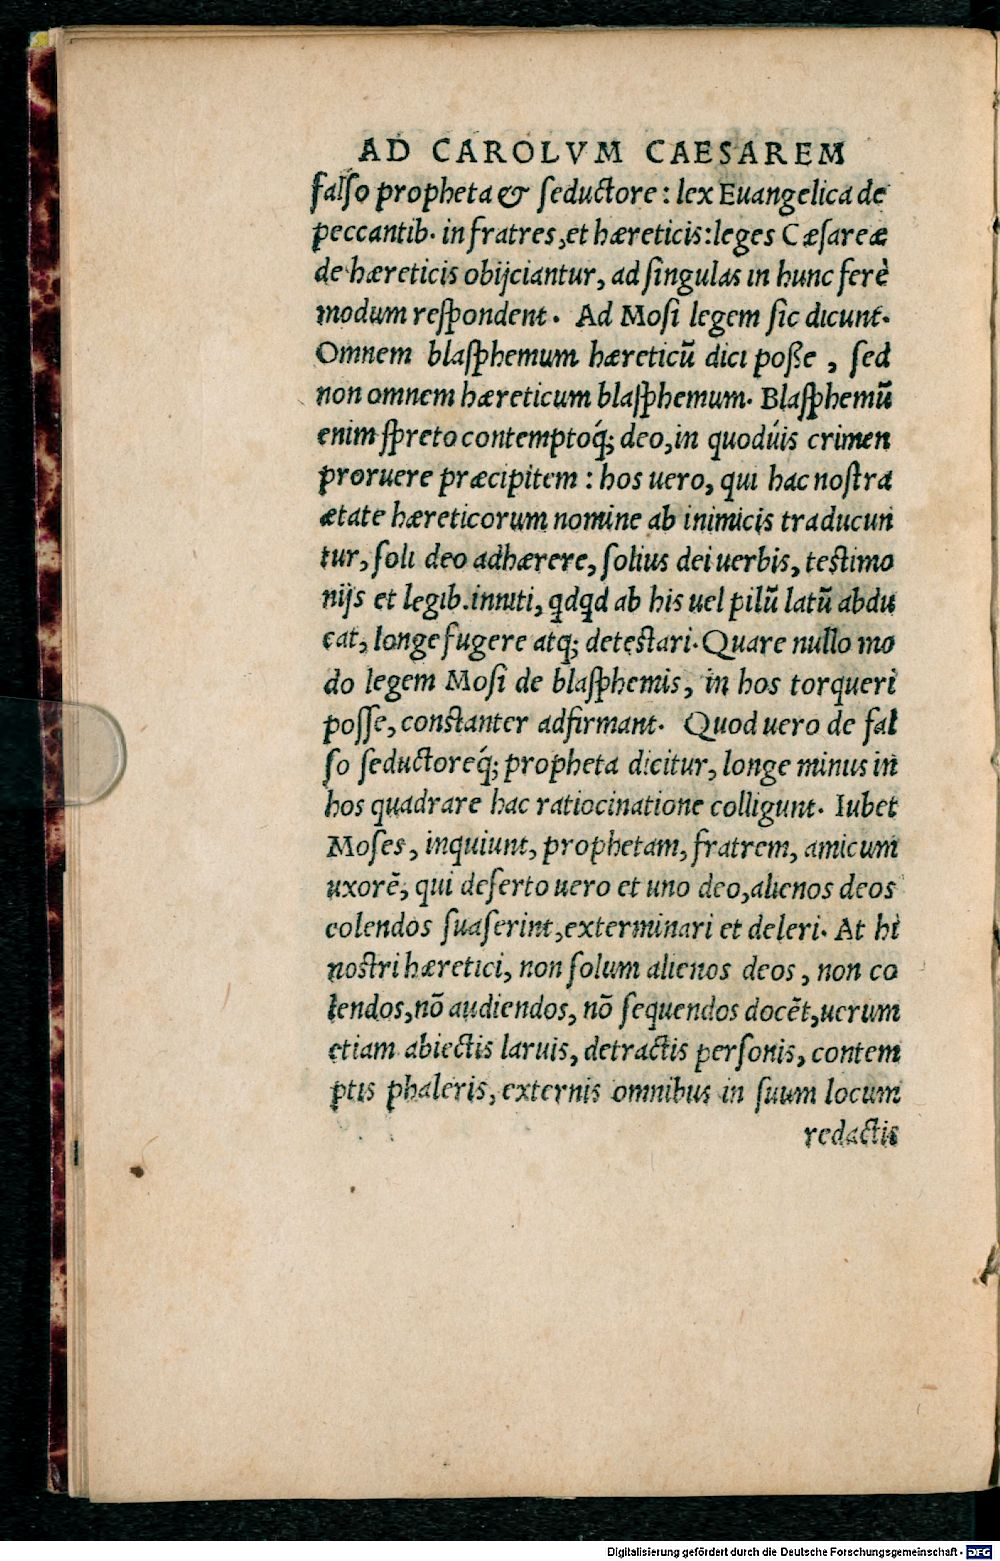 AD CAROLVM CAESAREM
falſo propheta & ſeductore: lex Euangelica de
peccantib. in fratres, et hæreticis: leges Cæſareæ
de hæreticis obijciantur, ad ſingulas in hunc ferè
modum reſpondent. Ad Moſi legem ſic dicunt.
Omnem blaſphemum hæreticū dici poße, ſed
non omnem hæreticum blaſphemum. Blaſphemū
enim ſpreto contemptoq́; deo, in quoduis crimen
proruere præcipitem: hos uero, qui hac noſtra
ætate hæreticorum nomine ab inimicis traducun
tur, ſoli deo adhærere, ſolius dei uerbis, teſtimo
nijs et legib. inniti, qdqd ab his uel pilū latū abdu
cat, longe fugere atq; deteſtari. Quare nullo mo
do legem Moſi de blaſphemis, in hos torqueri
poſſe, conſtanter adfirmant. Quod uero de fal
ſo ſeductoreq́; propheta dicitur, longe minus in
hos quadrare hac ratiocinatione colligunt. Iubet
Moſes, inquiunt, prophetam, fratrem, amicum
uxorē, qui deſerto uero et uno deo, alienos deos
colendos ſuaſerint, exterminari et deleri. At hi
noſtri hæretici, non ſolum alienos deos, non co
lendos, nō audiendos, nō ſequendos docēt, uerum
etiam abiectis laruis, detractis perſonis, contem
ptis phaleris, externis omnibus in ſuum locum
redactis
Digitalisierung gefördert durch die Deutsche Forschungsgemeinschaft - DFG